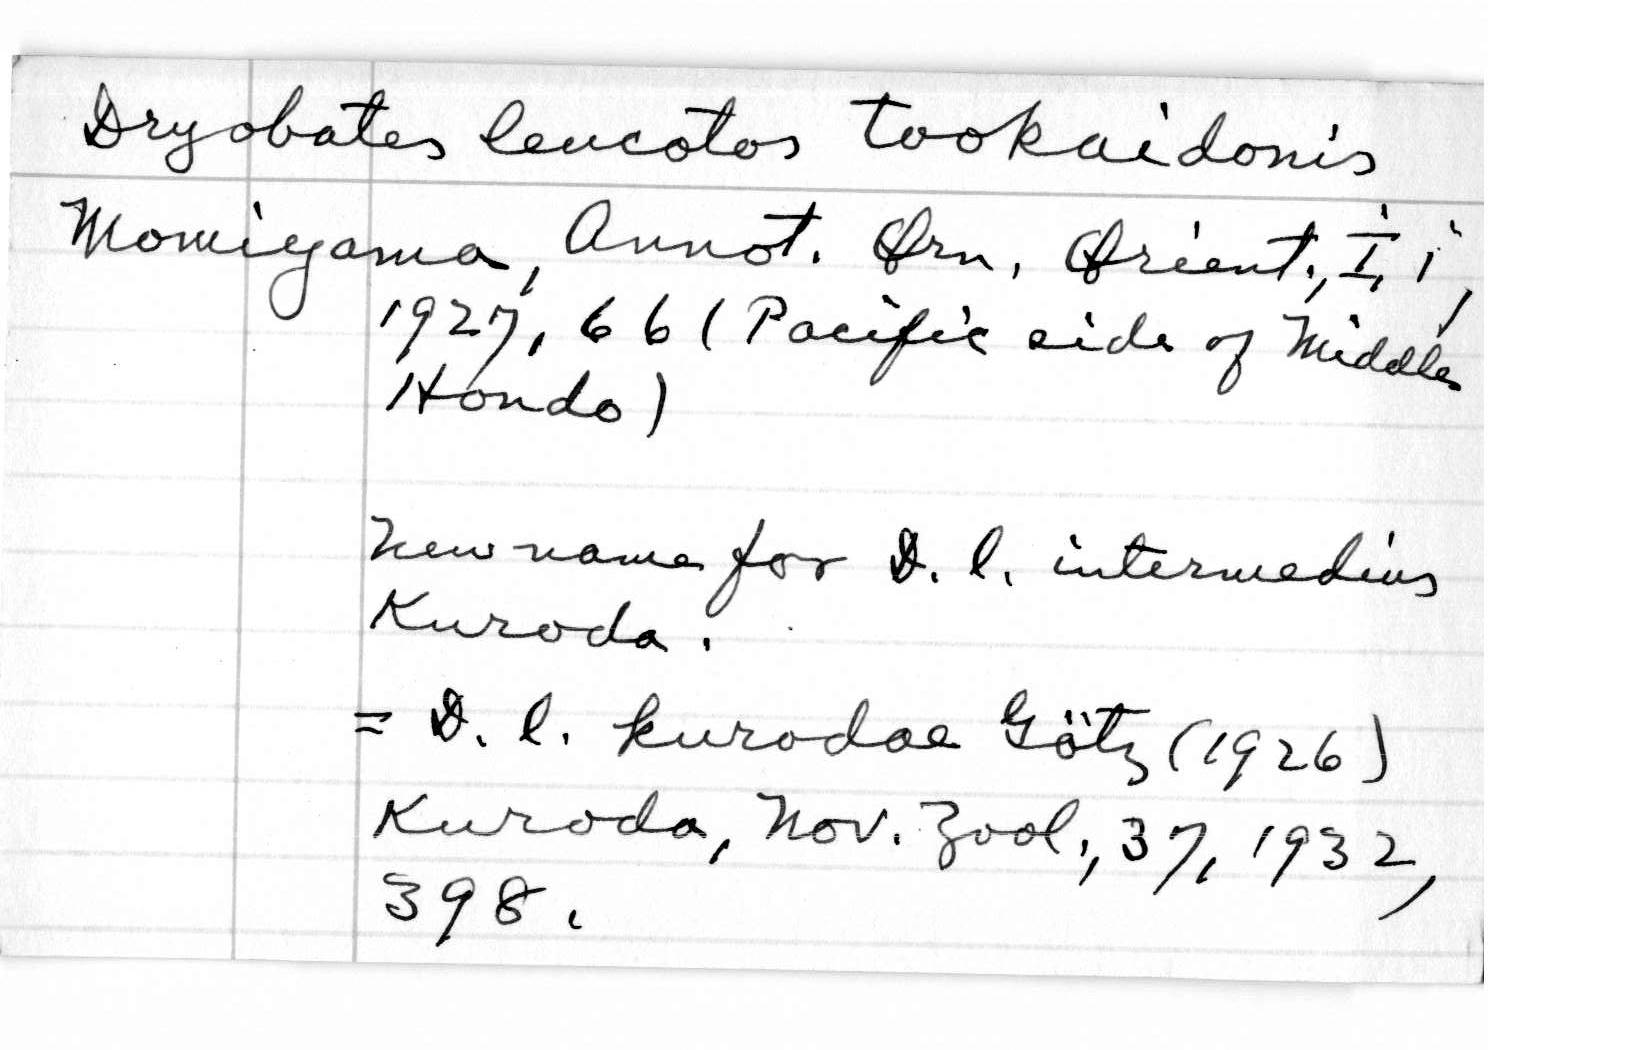 Dryobates leucotos tookaidonis
Momiyama, Annot. Orn. Orient., I, i,
1927, 66 (Pacific side of Middle
Hondo)
New name for D. l. intermedius
Kuroda.
= D. l. kurodae Götz (1926)
Kuroda, Nov. Zool., 37, 1932,
398.